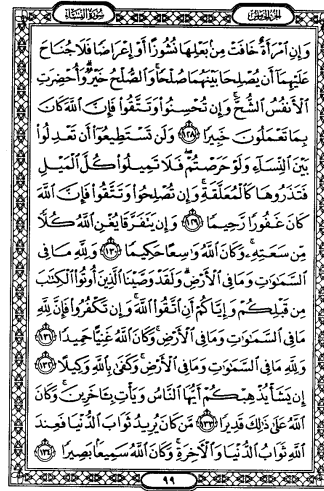 الجزء الخامس
سورة النساء
وَإِنِ ٱمْرَأَةٌ خَافَتْ مِنۢ بَعْلِهَا نُشُوزًا أَوْ إِعْرَاضًا فَلَا جُنَاحَ
عَلَيْهِمَآ أَن يُصْلِحَا بَيْنَهُمَا صُلْحًا ۚ وَٱلصُّلْحُ خَيْرٌ ۗ وَأُحْضِرَتِ
ٱلْأَنفُسُ ٱلشُّحَّ ۚ وَإِن تُحْسِنُوا۟ وَتَتَّقُوا۟ فَإِنَّ ٱللَّهَ كَانَ
بِمَا تَعْمَلُونَ خَبِيرًا ١٢٨ وَلَن تَسْتَطِيعُوٓا۟ أَن تَعْدِلُوا۟
بَيْنَ ٱلنِّسَآءِ وَلَوْ حَرَصْتُمْ ۖ فَلَا تَمِيلُوا۟ كُلَّ ٱلْمَيْلِ
فَتَذَرُوهَا كَٱلْمُعَلَّقَةِ ۚ وَإِن تُصْلِحُوا۟ وَتَتَّقُوا۟ فَإِنَّ ٱللَّهَ
كَانَ غَفُورًا رَّحِيمًا ١٢٩ وَإِن يَتَفَرَّقَا يُغْنِ ٱللَّهُ كُلًّا
مِّن سَعَتِهِۦ ۚ وَكَانَ ٱللَّهُ وَٰسِعًا حَكِيمًا ١٣٠ وَلِلَّهِ مَا فِى
ٱلسَّمَٰوَٰتِ وَمَا فِى ٱلْأَرْضِ ۗ وَلَقَدْ وَصَّيْنَا ٱلَّذِينَ أُوتُوا۟ ٱلْكِتَٰبَ
مِن قَبْلِكُمْ وَإِيَّاكُمْ أَنِ ٱتَّقُوا۟ ٱللَّهَ ۚ وَإِن تَكْفُرُوا۟ فَإِنَّ لِلَّهِ
مَا فِى ٱلسَّمَٰوَٰتِ وَمَا فِى ٱلْأَرْضِ ۚ وَكَانَ ٱللَّهُ غَنِيًّا حَمِيدًا ١٣١
وَلِلَّهِ مَا فِى ٱلسَّمَٰوَٰتِ وَمَا فِى ٱلْأَرْضِ ۚ وَكَفَىٰ بِٱللَّهِ وَكِيلًا ١٣٢
إِن يَشَأْ يُذْهِبْكُمْ أَيُّهَا ٱلنَّاسُ وَيَأْتِ بِـَٔاخَرِينَ ۚ وَكَانَ
ٱللَّهُ عَلَىٰ ذَٰلِكَ قَدِيرًا ١٣٣ مَّن كَانَ يُرِيدُ ثَوَابَ ٱلدُّنْيَا فَعِندَ
ٱللَّهِ ثَوَابُ ٱلدُّنْيَا وَٱلْأَخِرَةِ ۚ وَكَانَ ٱللَّهُ سَمِيعًۢا بَصِيرًا ١٣٤
٩٩